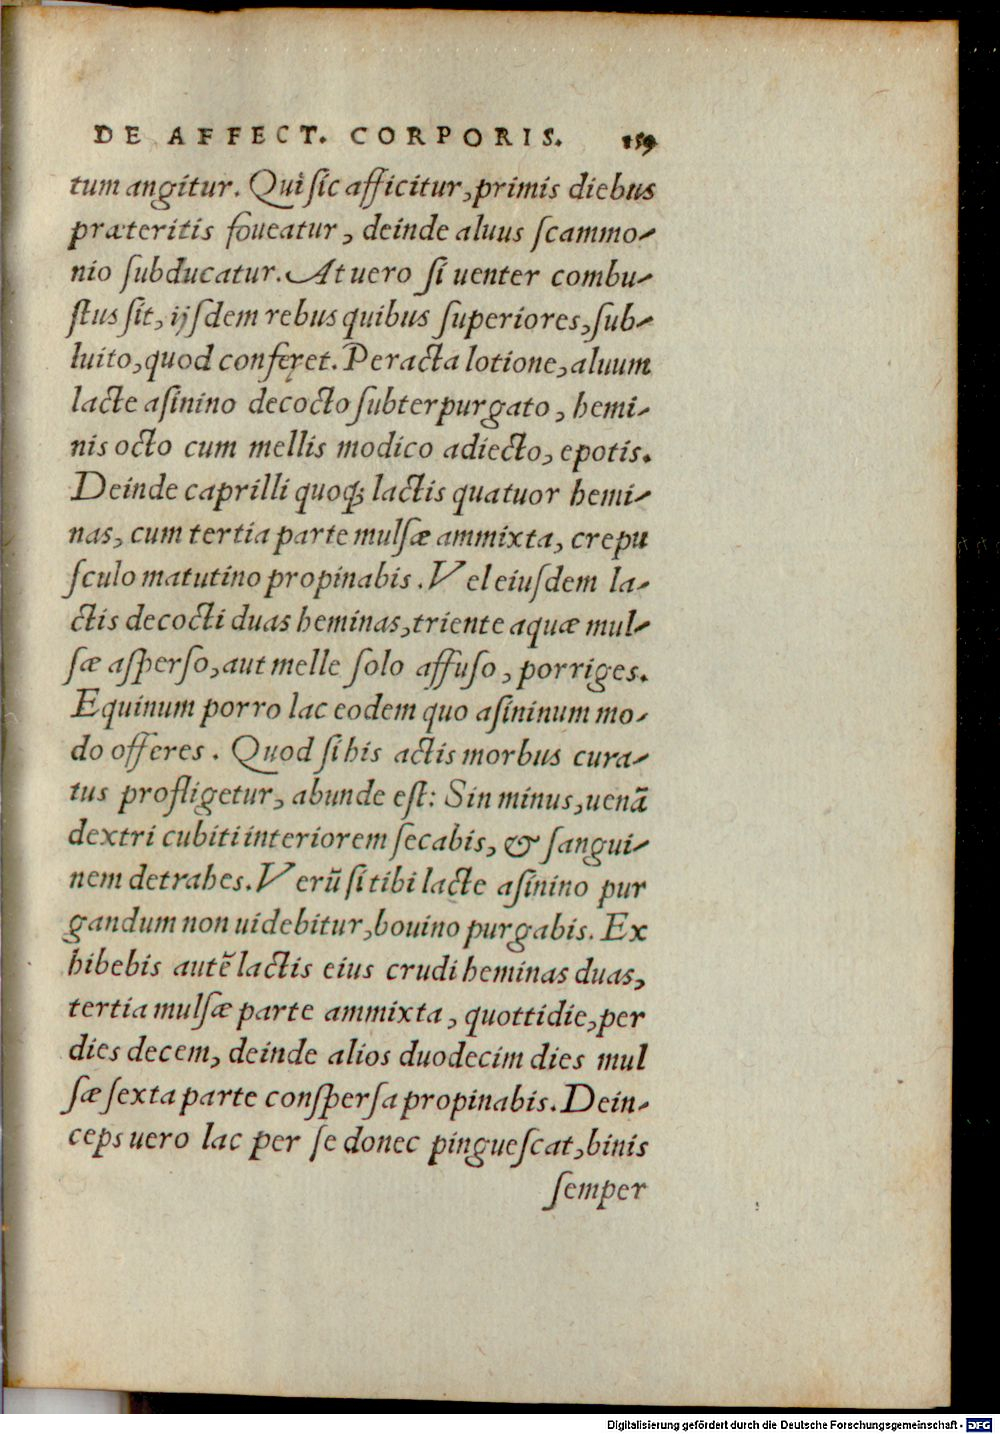 DE AFFECT. CORPORIS. 159
tum angitur. Qui sic afficitur, primis diebus
præteritis foueatur, deinde aluus scammo-
nio subducatur. At uero si uenter combu-
stus sit, ijsdem rebus quibus superiores, sub-
luito, quod conferet. Peracta lotione, aluum
lacte asinino decocto subterpurgato, hemi-
nis octo cum mellis modico adiecto, epotis.
Deinde caprilli quoq; lactis quatuor hemi-
nas, cum tertia parte mulsæ ammixta, crepu
sculo matutino propinabis. Vel eiusdem la-
ctis decocti duas heminas, triente aquæ mul-
sæ asperso, aut melle solo affuso, porriges.
Equinum porro lac eodem quo asininum mo-
do offeres. Quod si his actis morbus cura-
tus profligetur, abunde est: Sin minus, uenã
dextri cubiti interiorem secabis, & sangui-
nem detrahes. Verũ si tibi lacte asinino pur
gandum non uidebitur, bouino purgabis. Ex
hibebis autẽ lactis eius crudi heminas duas,
tertia mulsæ parte ammixta, quottidie, per
dies decem, deinde alios duodecim dies mul
sæ sexta parte conspersa propinabis. Dein-
ceps uero lac per se donec pinguescat, binis
semper
Digitalisierung gefördert durch die Deutsche Forschungsgemeinschaft - DFG